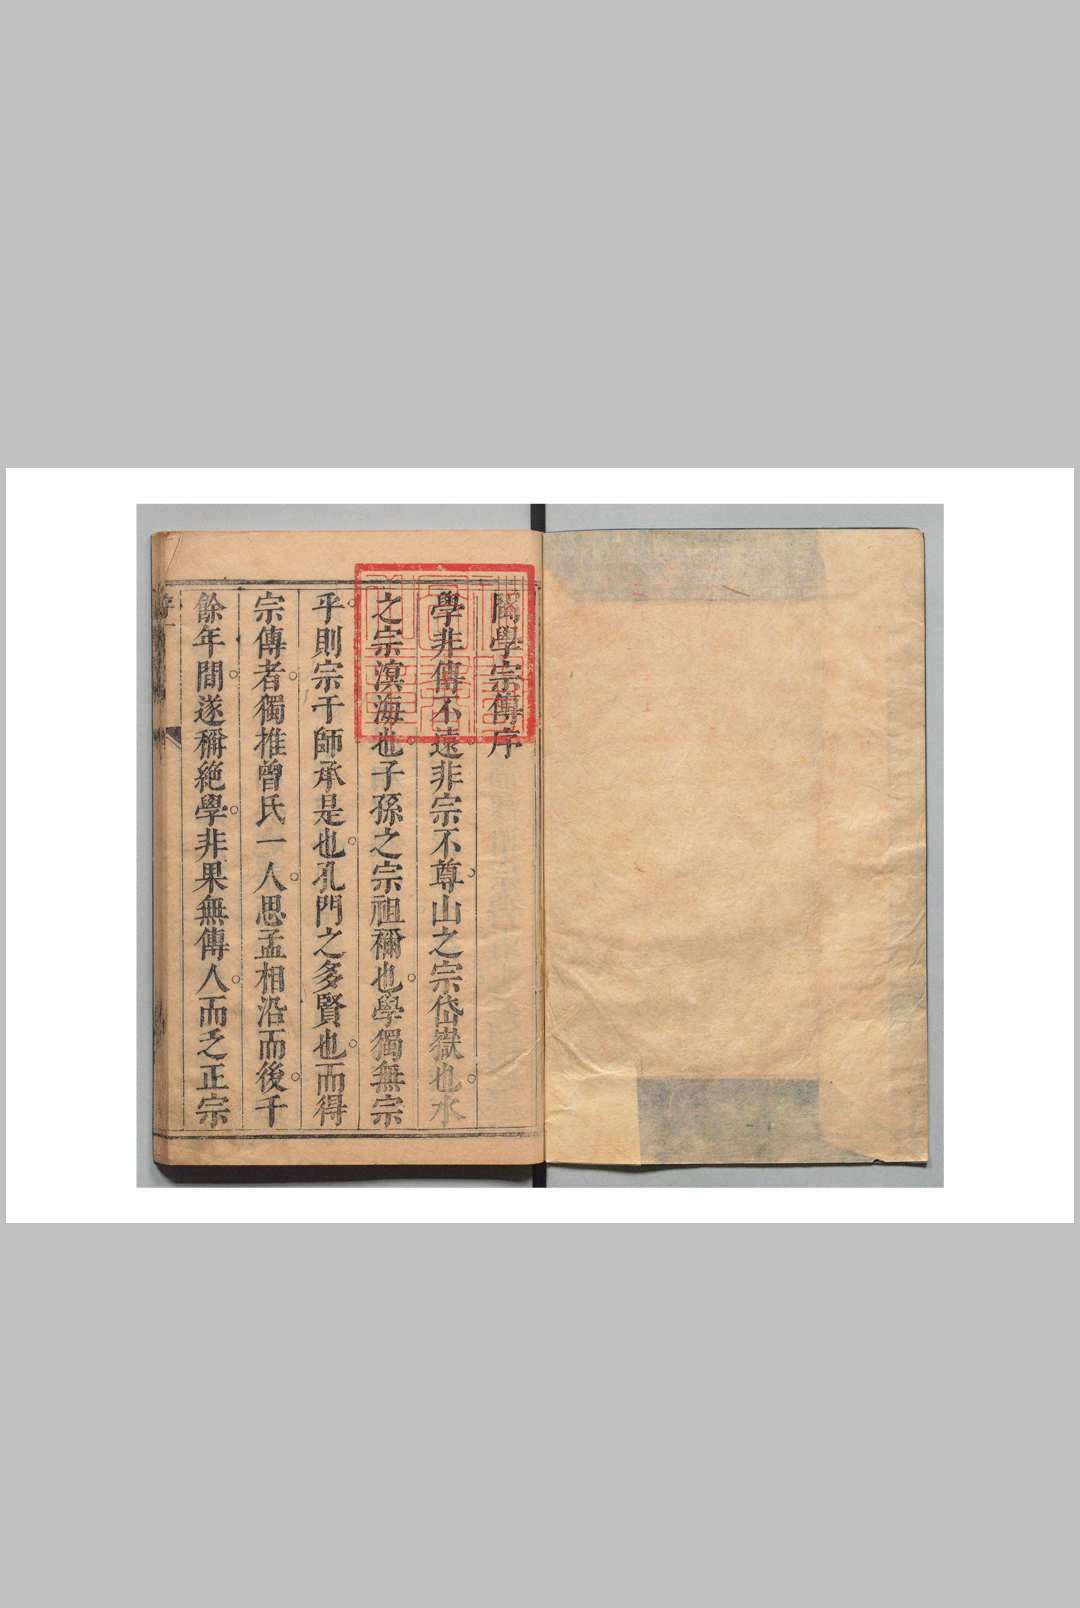 閩學宗傳序
學非傳不遠。非宗不尊、山之宗岱嶽也。水
之宗溟海也。子孫之宗祖禰也。學獨無宗
乎。則宗于師承是也。孔門之多賢也。而得
宗傳者。獨推曾氏一人。思孟相沿。而後千
餘年間。遂稱絶學。非果無傳人。而乏正宗
序